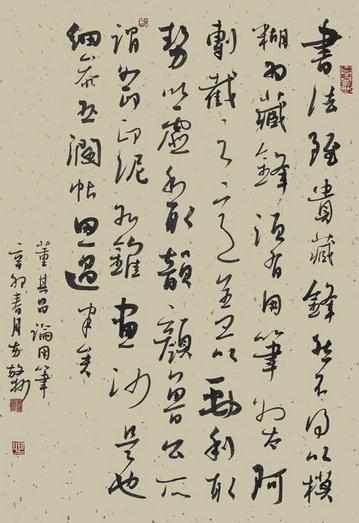 書法雖貴藏鋒然不得以模
糊为藏鋒須有用筆如太阿
剸截之意蓋以勁利取
勢以虛和取韻顏魯公所
謂如印印泥如錐畫沙是也
細參玉潤帖思過半矣
董其昌論用筆
辛卯春月